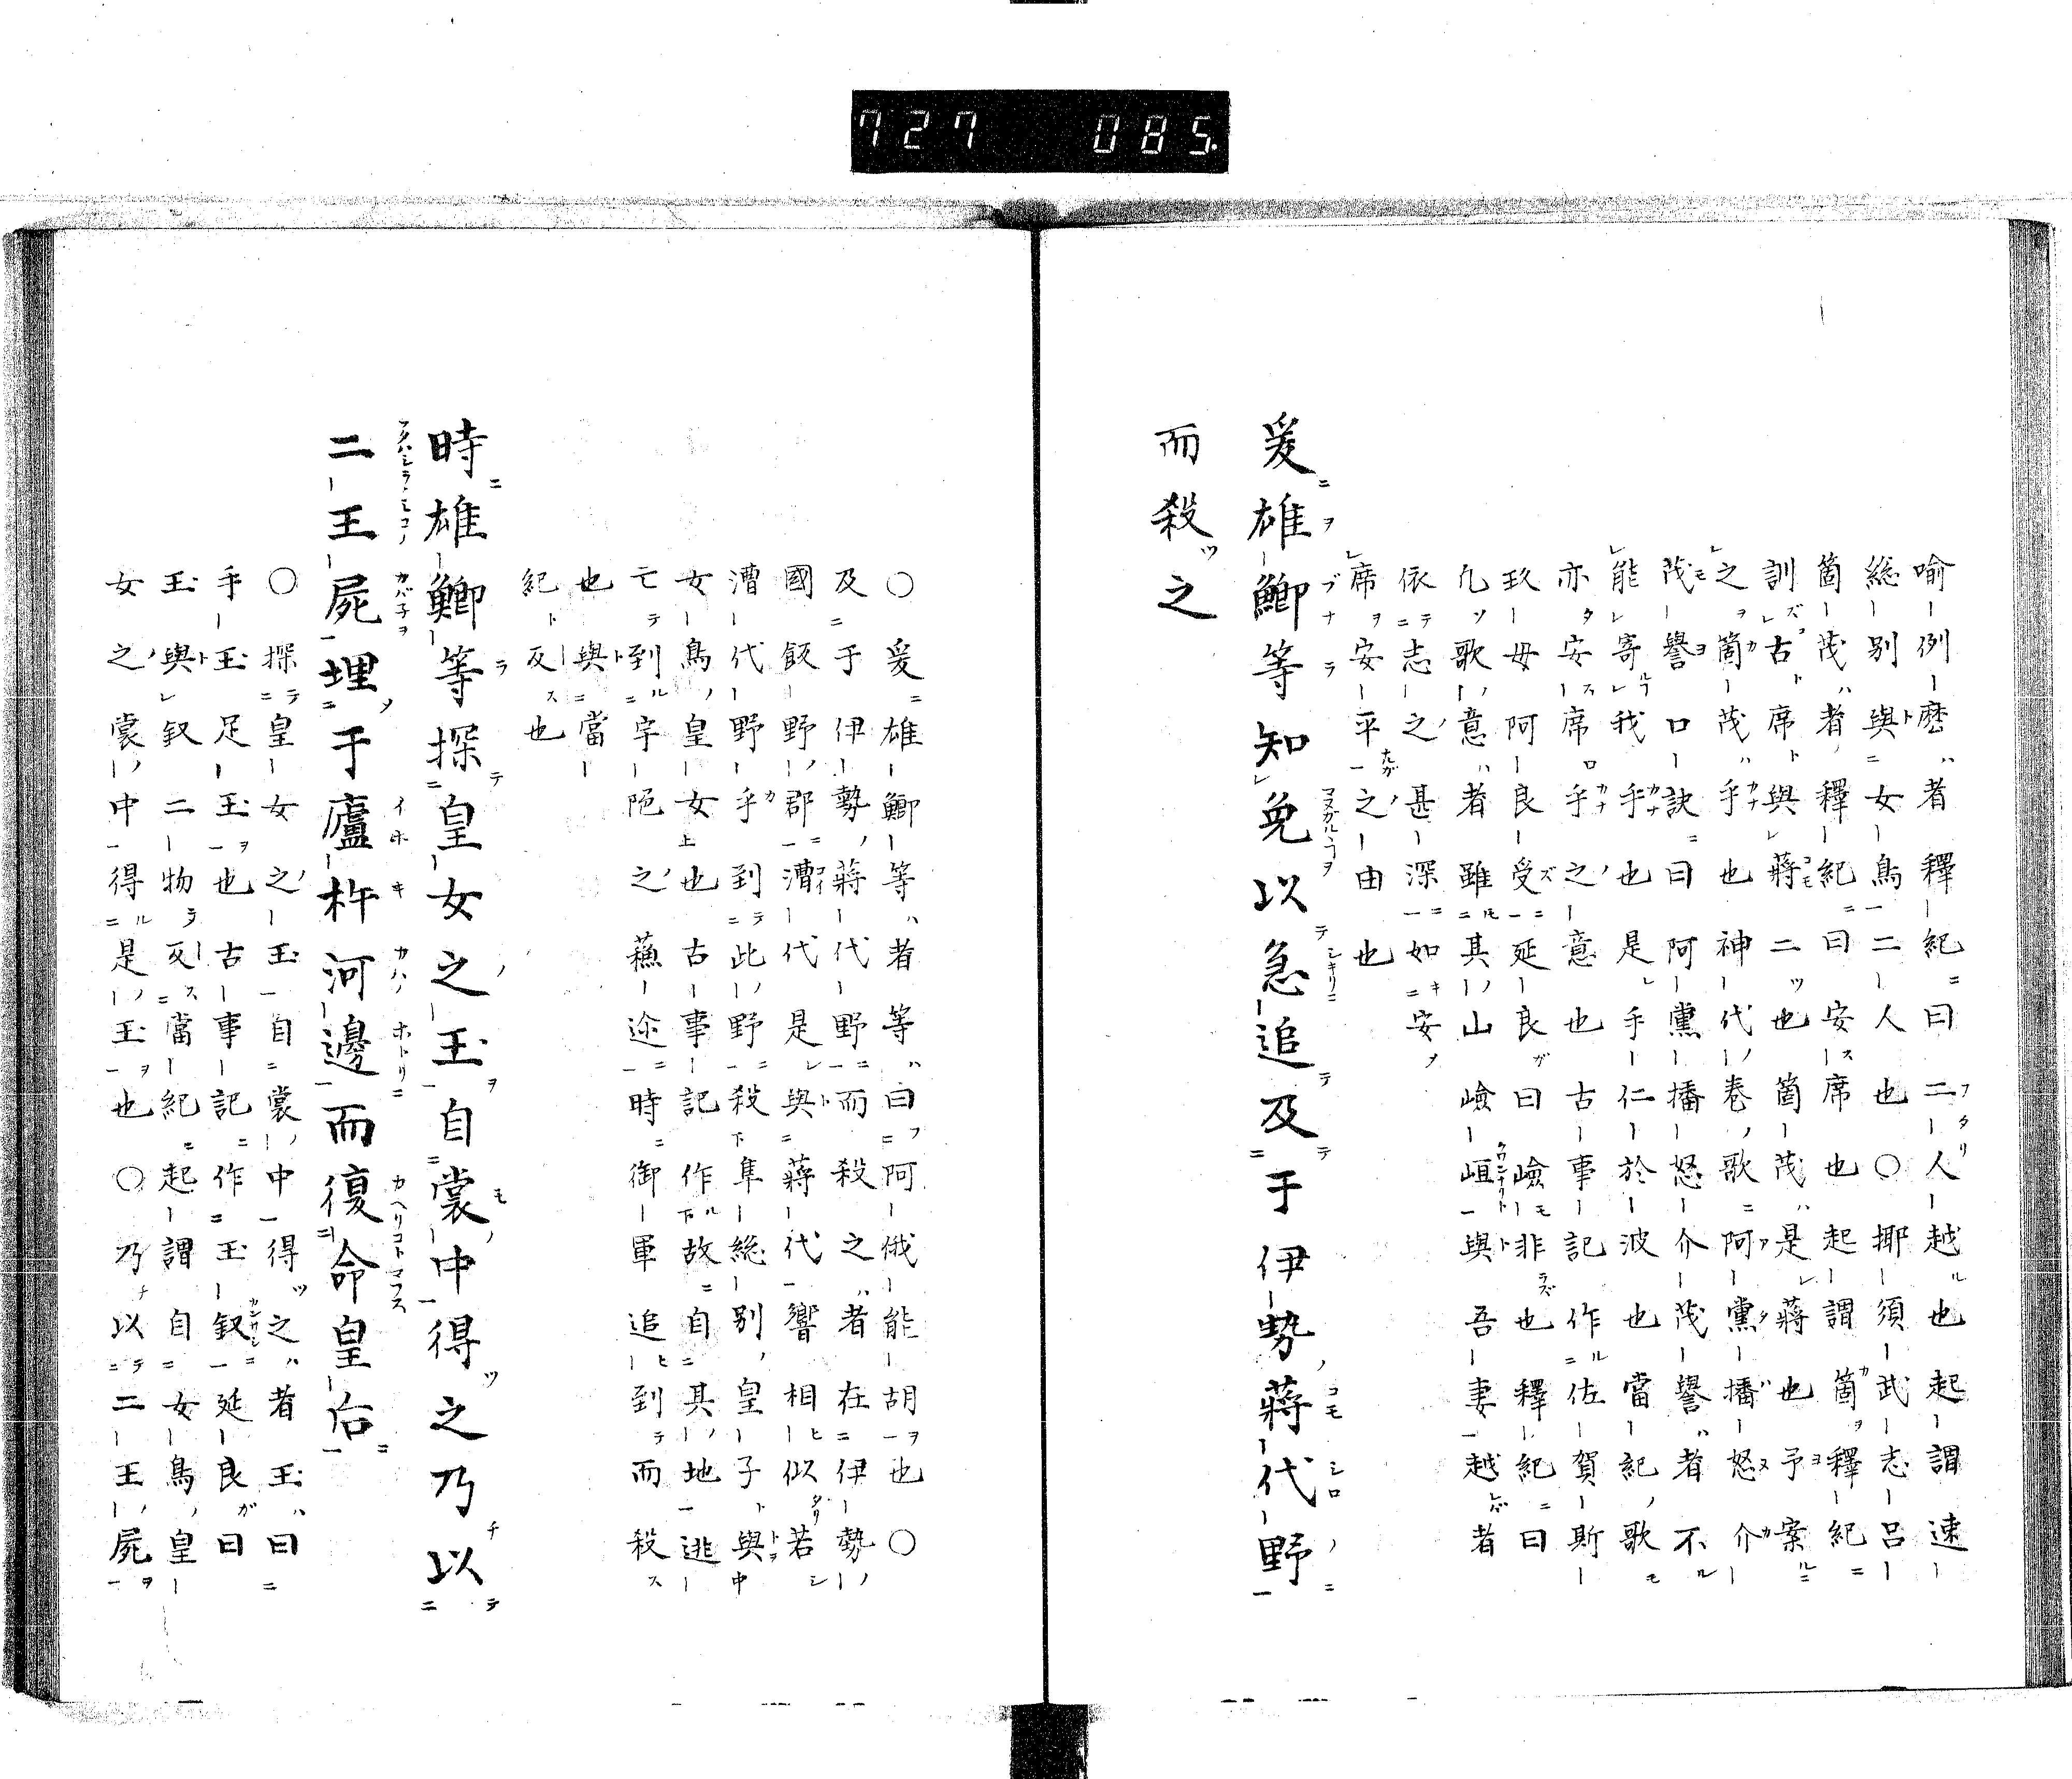 727 085
喩例麽者釋紀曰二人越也起謂速
総別與女鳥二人也○揶須武志呂
箇茂者釋紀曰安席也起謂箇釋紀
訓古席與蔣二也箇茂是蔣也予案
之箇茂乎也神代卷歌阿黨播怒介
茂譽口訣曰阿黨播怒介茂譽者不
能寄我乎也是手仁於波也當紀歌
亦安席乎之意也古事記作佐賀斯
玖母阿良受延良曰嶮非也釋紀曰
凢歌意者雖其山嶮岨與吾妻越者
依志之甚深如安
席安平之由也
爰雄鯽等知免以急追及于伊勢蔣代野
而殺之
○爰雄鯽等者等曰阿俄能胡也○
及于伊勢蔣代野而殺之者在伊勢
國飯野郡漕代是與蔣代響相似若
漕代野乎到此野殺隼総別皇子與
女鳥皇女也古事記作故自其地逃
亡到宇陁之蘓迩時御軍追到而殺
也與當
紀反也
時雄鯽等探皇女之玉自裳中得之乃以
二王屍埋于廬杵河邊而復命皇后
○探皇女之玉自裳中得之者玉曰
手玉足玉也古事記作玉釼延良曰
玉與釼二物反當紀起謂自女鳥皇
女之裳中得是玉也○乃以二王屍